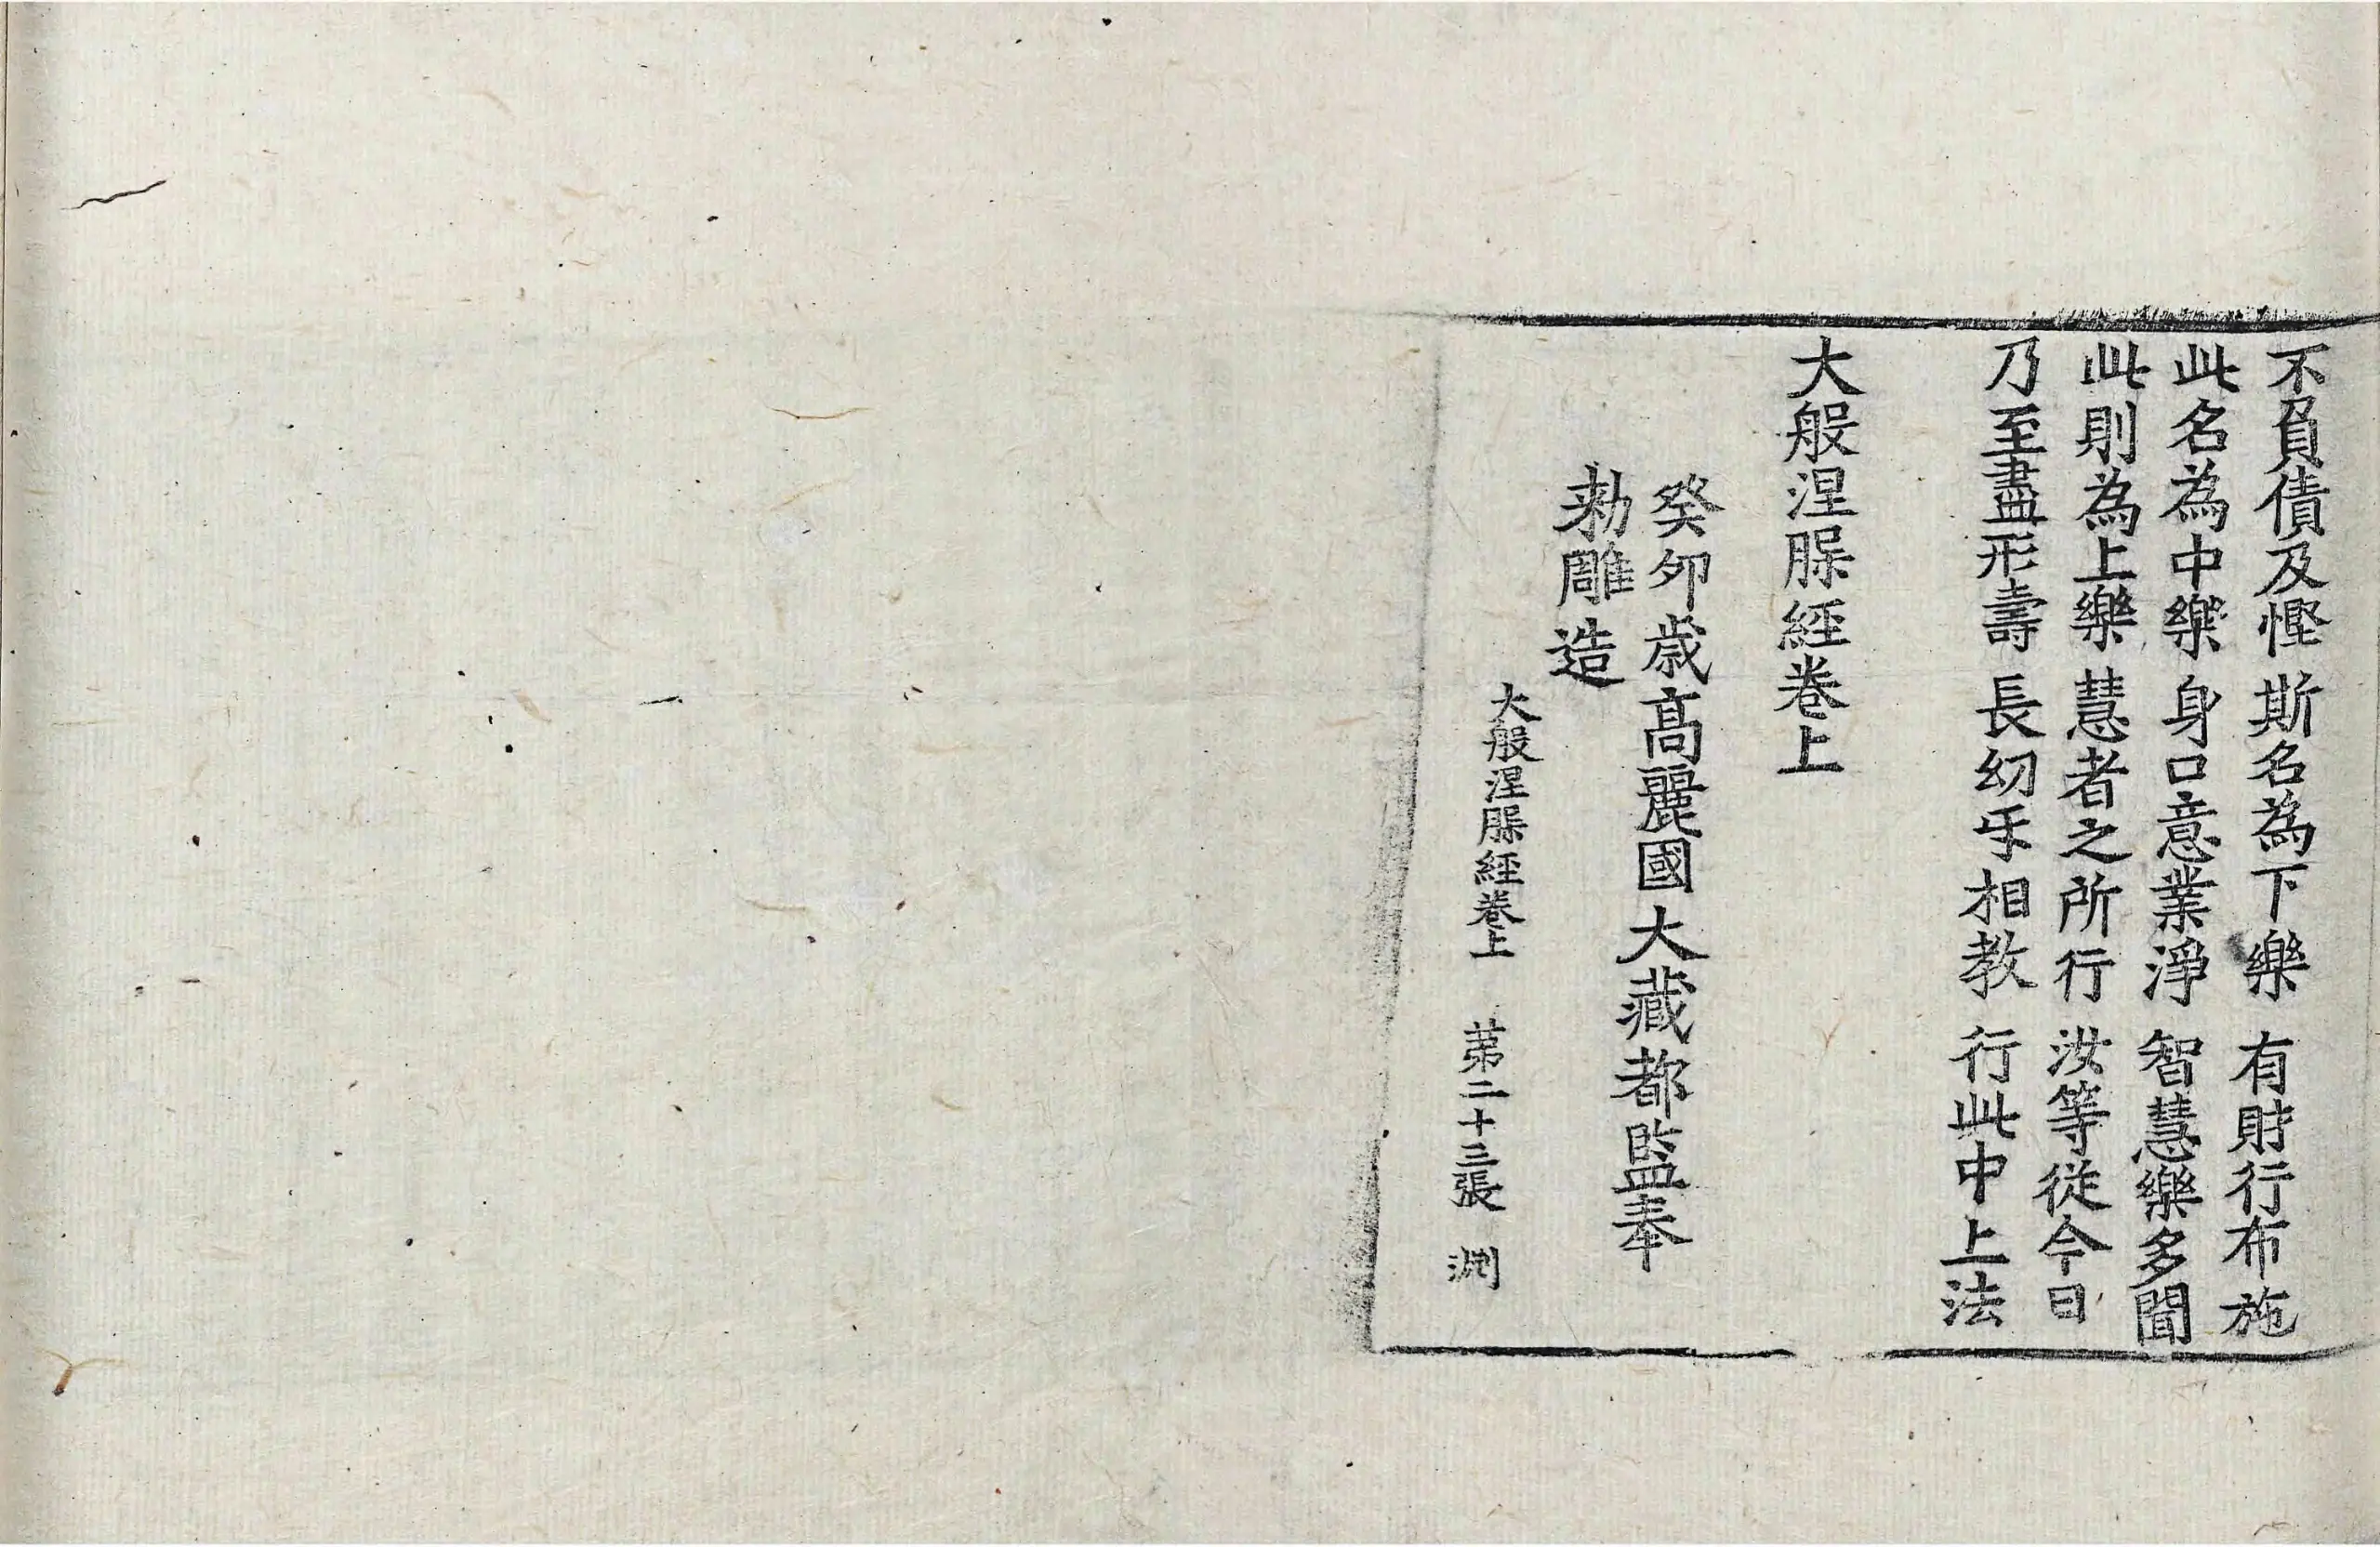 不負債及慳 斯名為下樂 有財行布施
此名為中樂 身口意業淨 智慧樂多聞
此則為上樂 慧者之所行 汝等從今日
乃至盡形壽 長幼乎相教 行此中上法
大般涅脲經卷上
癸夘歳髙麗國大藏都監奉
勑雕造
大般涅脲經卷上 苐二十三張 渕